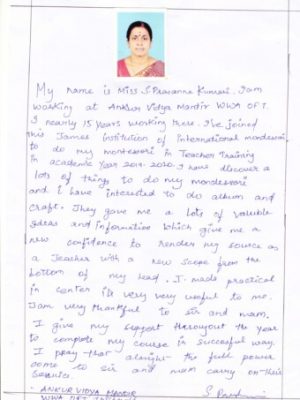 My name is Miss S. Prasanna Kumari. I am
working at Ankur Vidya Mandir WWA OFT.
I nearly 15 years working there. I've joined
this James institution of International mondessori
to do my montessori in Teacher Training
in academic Year 2019-2020. I have discover a
lots of things to do my mondessori
and I have interested to do album and
craft. They gave me a lots of valuble
ideas and information which give me a
new confidence to render my source as
a Teacher with a new scope from the
bottom of my head. I made practical
in center its very very useful to me.
I am very thankful to sir and mam.
I give my support througout the year
to complete my course in succesful way.
I pray that almight the full power
come to sir and mam carry on their
service.
- ANKUR VIDYA MANDIR
WWA OFT